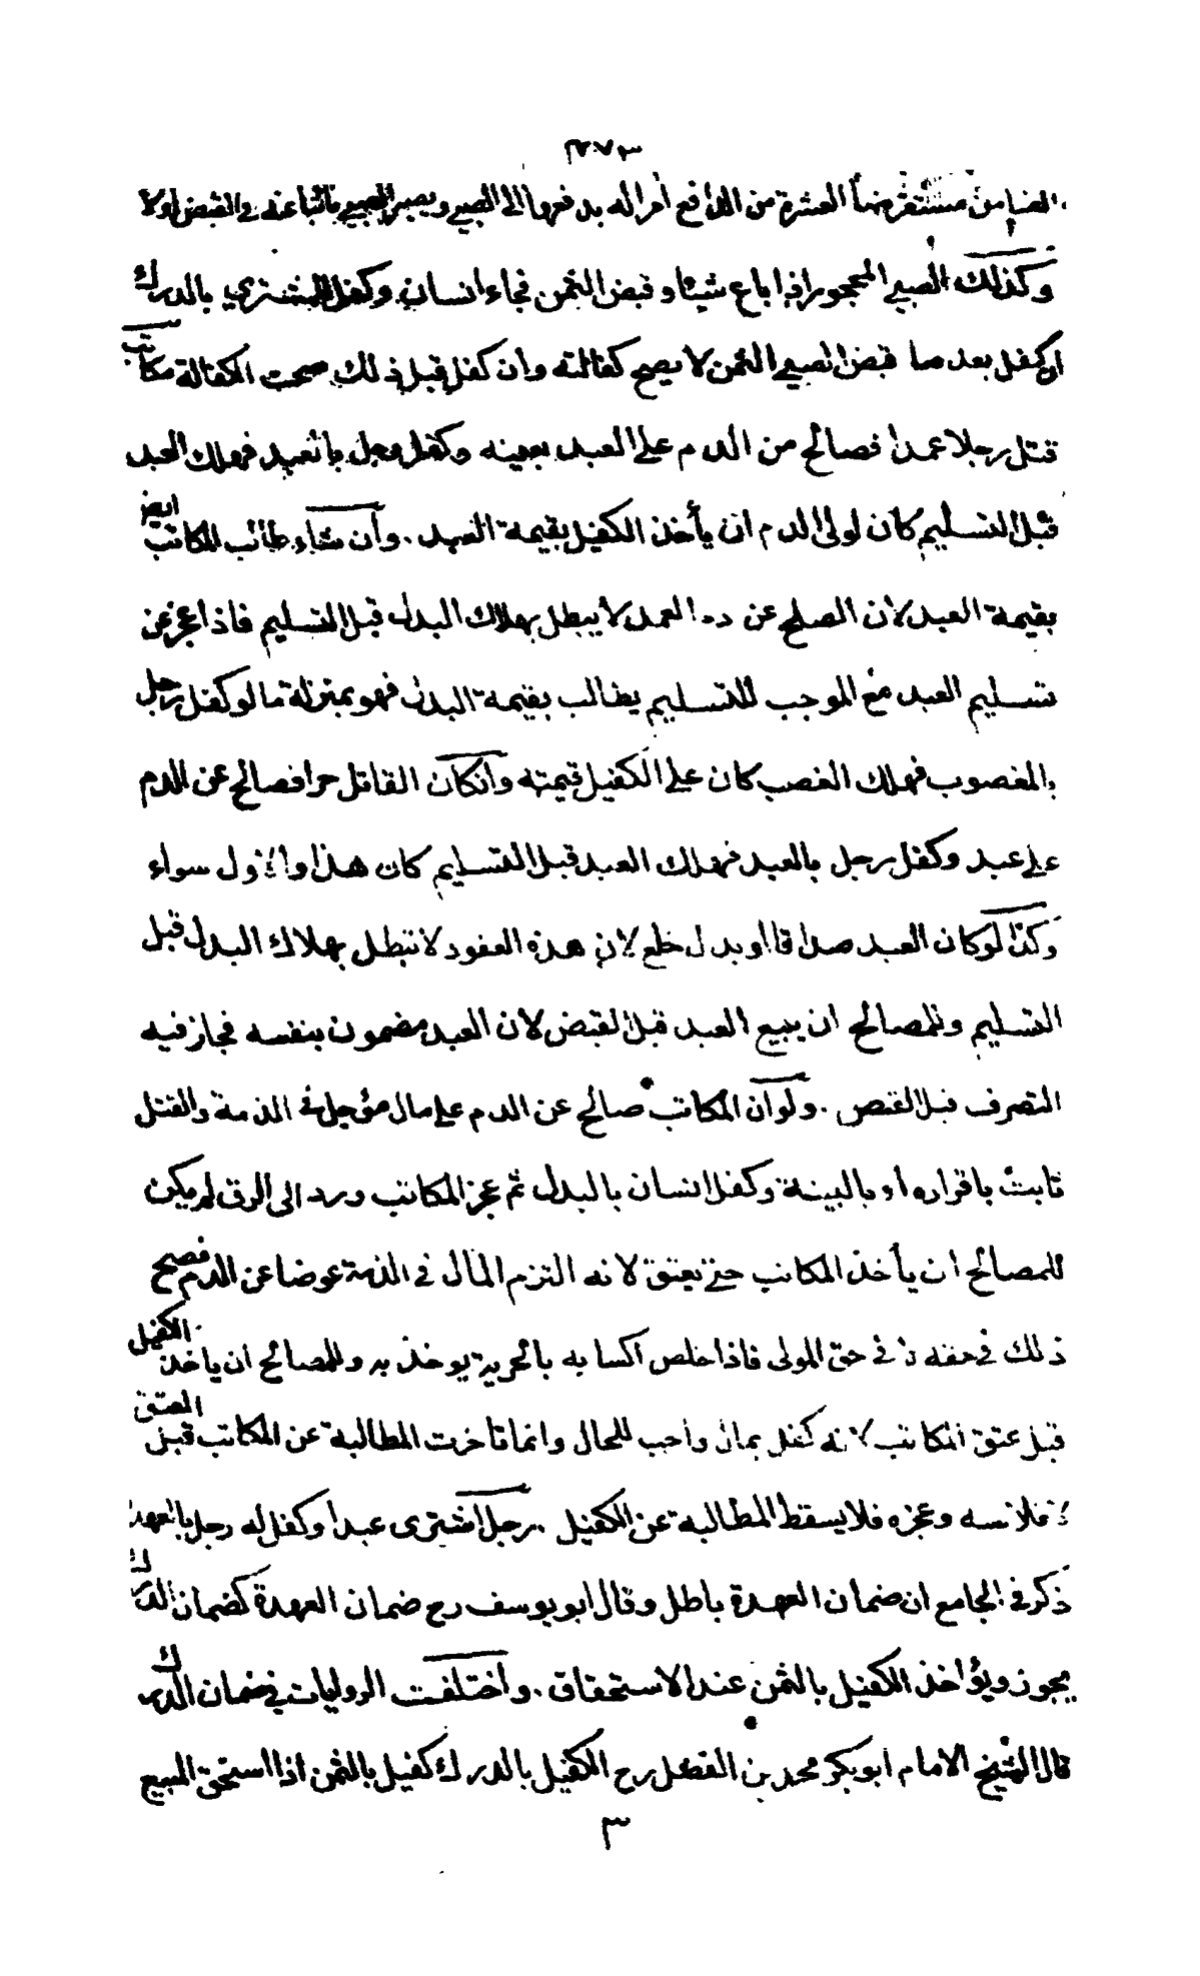 ٢٧٣
الضامن مستقرضا العشرة من الدافع أمرا له بدفعها الى الصبي ويصير الصبي نائبا عنه في القبض اولا
وكذلك الصبي المحجور اذا باع شيئا وقبض الثمن فجاء انسان وكفل للمشتري بالدرك
ان كفل بعد ما قبض الصبي الثمن لا يصح كفالته وان كفل قبل ذلك صحت الكفالة مكاتب
قتل رجلا عمدا فصالح من الدم على العبد بعينه وكفل رجل بالعبد فهلك العبد
قبل التسليم كان لولي الدم ان يأخذ الكفيل بقيمة العبد . وان شاء طالب المكاتب ايضا
بقيمة العبد لان الصلح عن دم العمد لا يبطل بهلاك البدل قبل التسليم فاذا عجز عن
تسليم العبد مع الموجب للتسليم يطالب بقيمة البدل فهو بمنزلة ما لو كفل رجل
بالمغصوب فهلك الغصب كان على الكفيل قيمته وانكان القاتل حرا فصالح عن الدم
على عبد وكفل رجل بالعبد فهلك العبد قبل التسليم كان هذا والاول سواء
وكذا لو كان العبد صداقا او بدل خلع لان هذه العقود لا تبطل بهلاك البدل قبل
التسليم وللمصالح ان يبيع العبد قبل القبض لان العبد مضمون بنفسه فجاز فيه
التصرف قبل القبض . ولو ان المكاتب صالح عن الدم على مال مؤجل في الذمة والقتل
ثابت باقراره او بالبينة وكفل انسان بالبدل ثم عجز المكاتب ورد الى الرق لم يكن
للمصالح ان يأخذ المكاتب حتى يعتق لانه التزم المال في الذمة عوضا عن الدم فصح
ذلك في حقه لا في حق المولى فاذا خلص اكسابه بالحرية يوخذ به وللمصالح ان ياخذ الكفيل
قبل عتق المكاتب لانه كفل بمال واجب للحال وانما تاخرت المطالبة عن المكاتب قبل العتق
لافلاسه وعجزه فلا يسقط المطالبة عن الكفيل . رجل اشترى عبدا وكفل له رجل بالعهدة
ذكر في الجامع ان ضمان العهدة باطل وقال ابو يوسف رح ضمان العهدة كضمان الدرك
يجوز ويؤاخذ الكفيل بالثمن عند الاستحقاق . واختلفت الروايات في ضمان الدرك
قال الشيخ الامام ابوبكر محمد بن الفضل رح الكفيل بالدرك كفيل بالثمن اذا استحق المبيع
٣